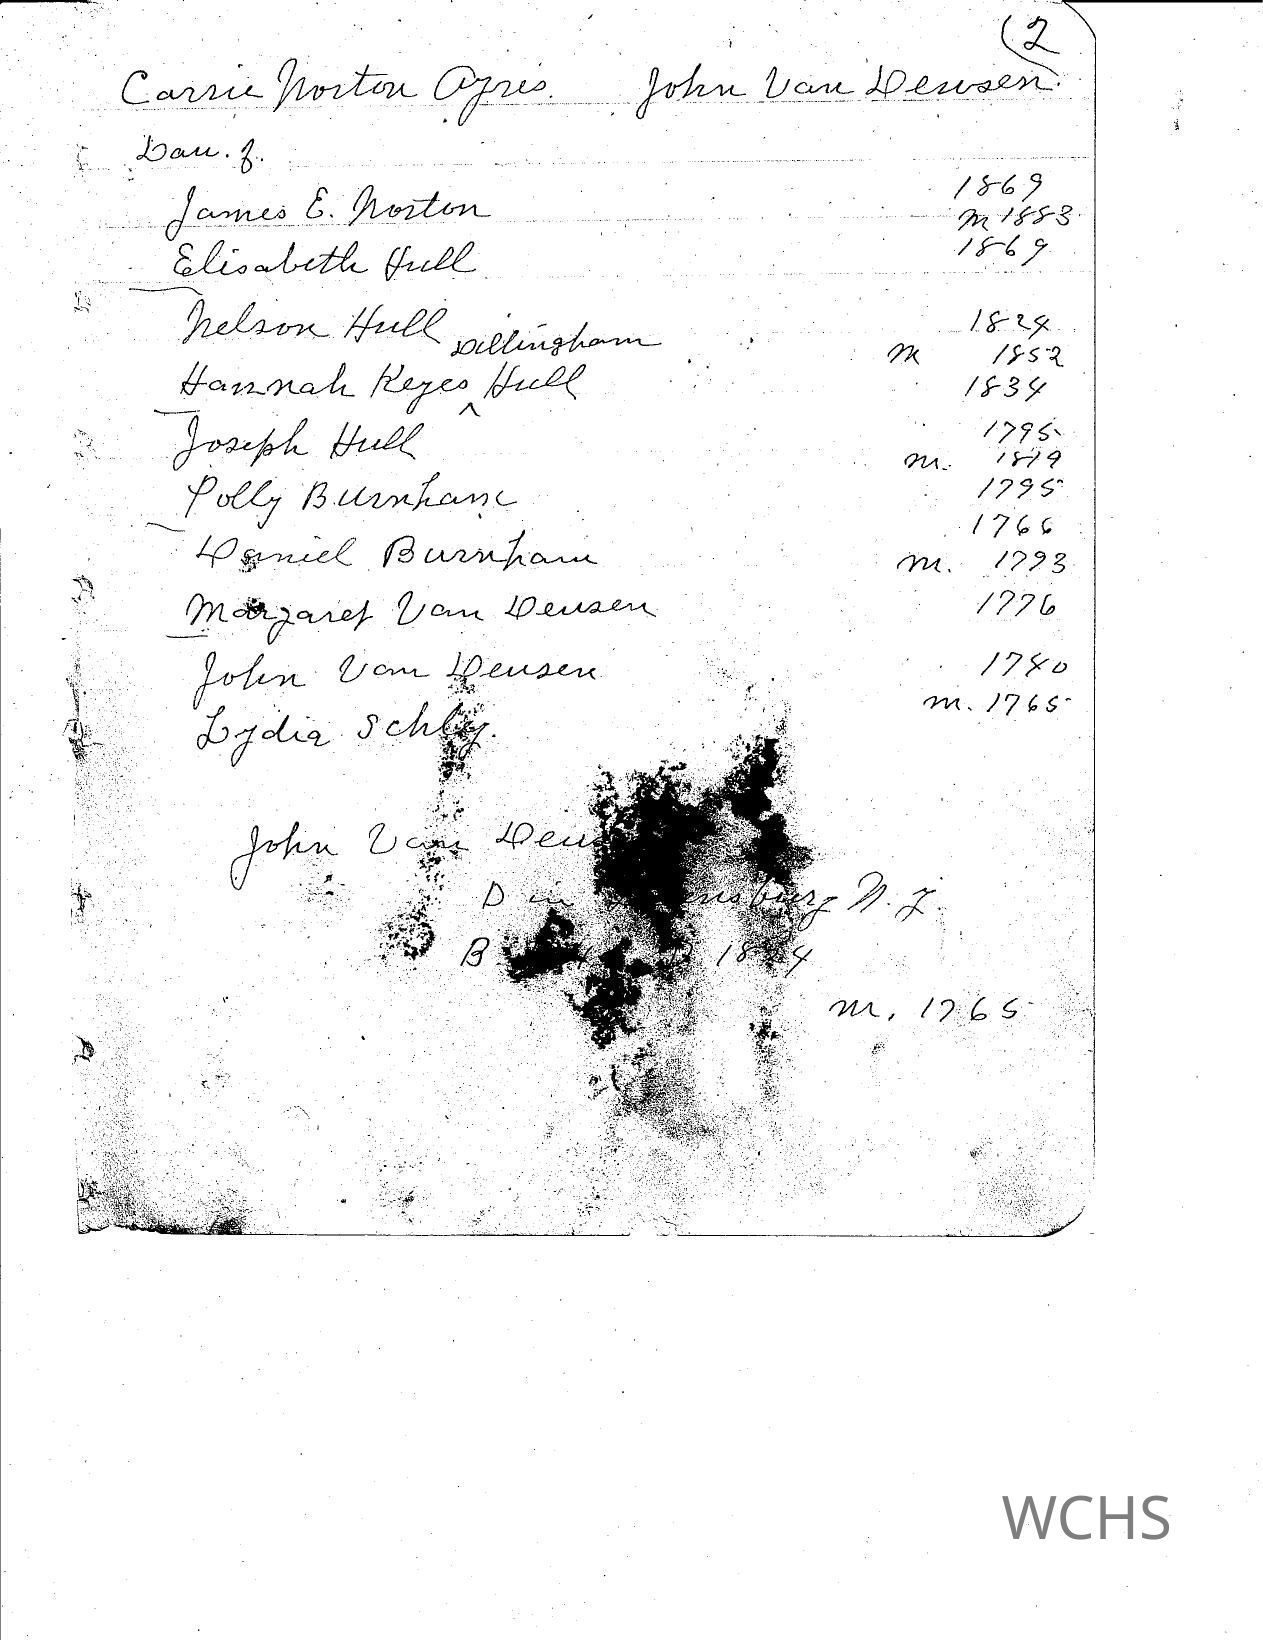 (2
Carrie Norton Ayris. John Van Deusen.
Dau. of.
James E. Norton 1869
m 1883
Elisabeth Hull 1869
Nelson Hull 1824
Dillingham m 1852
Hannah Keyes ^ Hull 1834
Joseph Hull 1795
m. 1819
Polly Burnham 1795
Daniel Burnham 1766
m. 1793
Margaret Van Deusen 1776
John Van Deusen 1740
m. 1765
Lydia Schly.
John Van
D in N. J.
B
m. 1765
WCHS